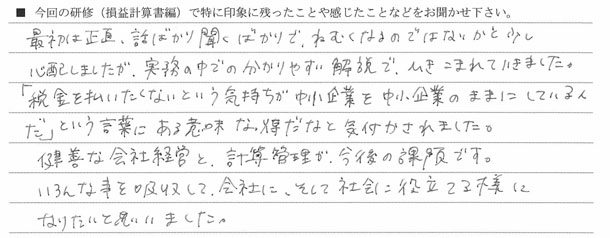 ■ 今回の研修（損益計算書編）で特に印象に残ったことや感じたことなどをお聞かせ下さい。
最初は正直、話ばかり聞くばかりで、ねむくなるのではないかと少し
心配しましたが、実務の中での分かりやすい解説で、ひきこまれていきました。
「税金を払いたくないという気持ちが中小企業を中小企業のままにしているん
だ」という言葉にある意味な得だなと気付かされました。
健善な会社経営と、計算管理が、今後の課題です。
いろんな事を吸収して、会社に、そして社会に役立てる様に
なりたいと思いました。